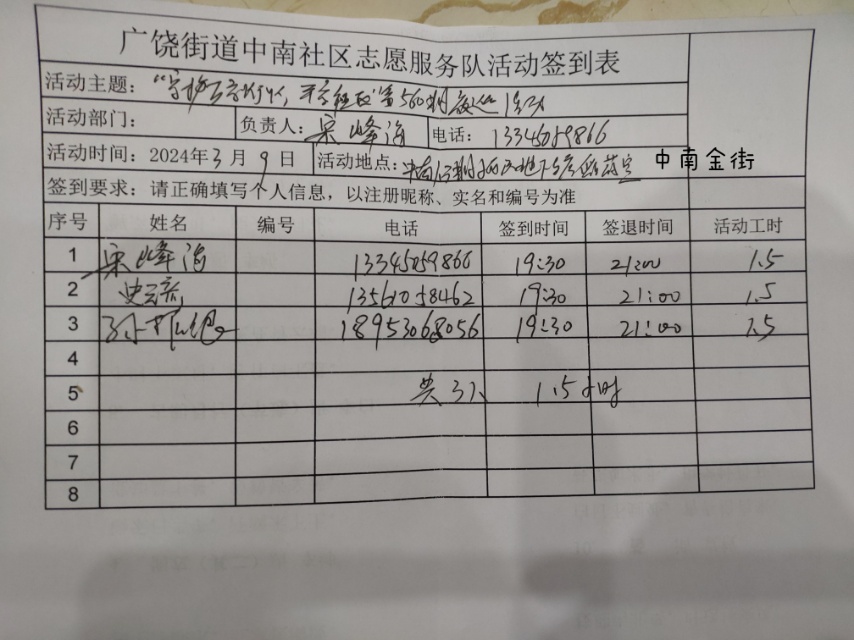 广饶街道中南社区志愿服务队活动签到表
活动主题：“守护百家灯火，平安社区”第560期夜巡活动
活动部门： 负责人：宋峰海 电话：13345059866
活动时间：2024年3月9日 活动地点：中南 中南金街
签到要求：请正确填写个人信息，以注册昵称、实名和编号为准
序号 姓名 编号 电话 签到时间 签退时间 活动工时
1 宋峰海 13345059866 19:30 21:00 1.5
2 13561058462 19:30 21:00 1.5
3 孙 18953068056 19:30 21:00 1.5
4
5 共3人 1.5小时
6
7
8